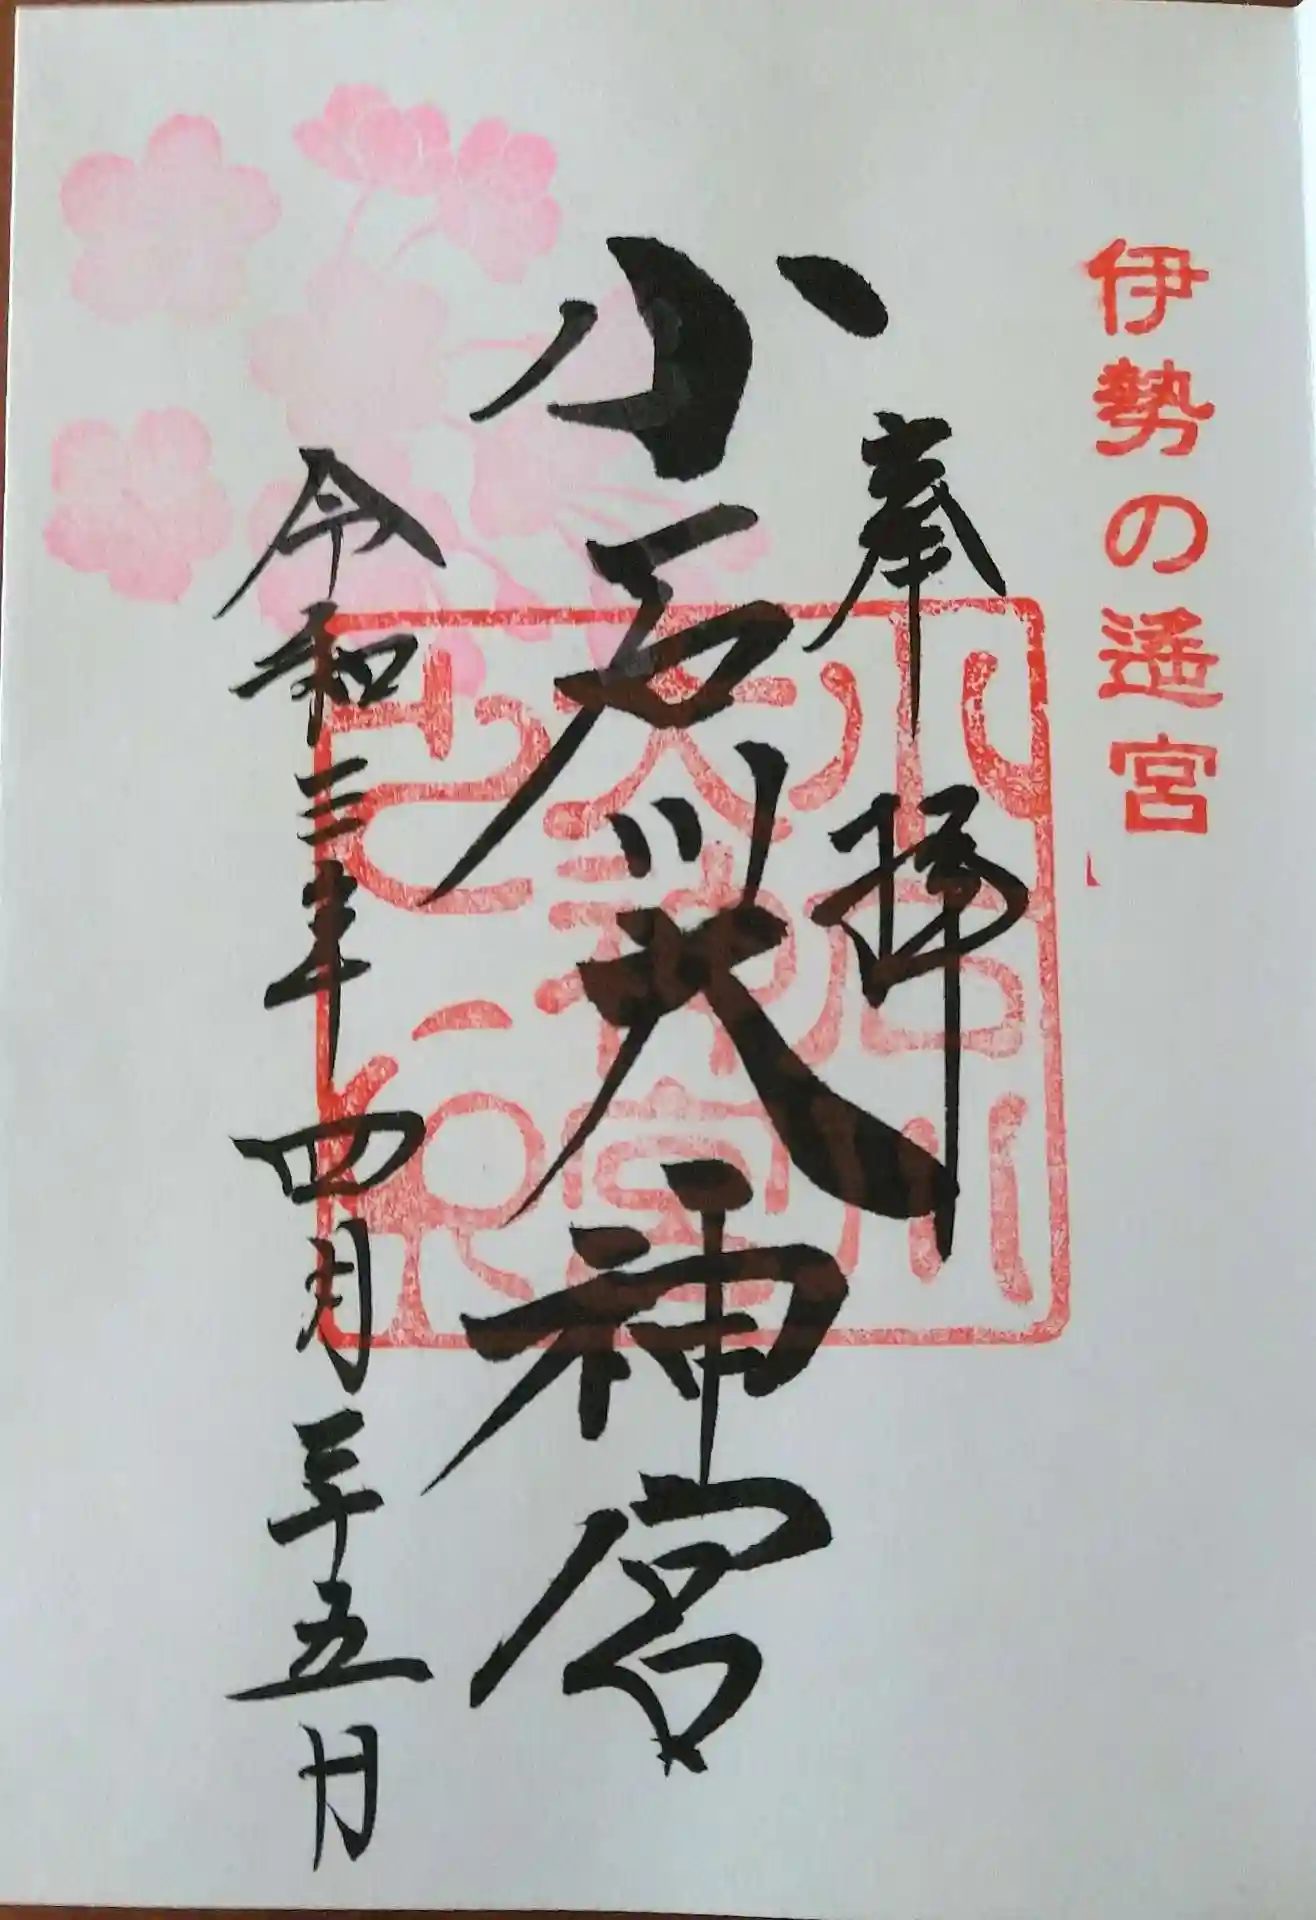 伊勢の遙宮
奉拝
小石川大神宮
令和三年四月二十五日
小石川
大神宮